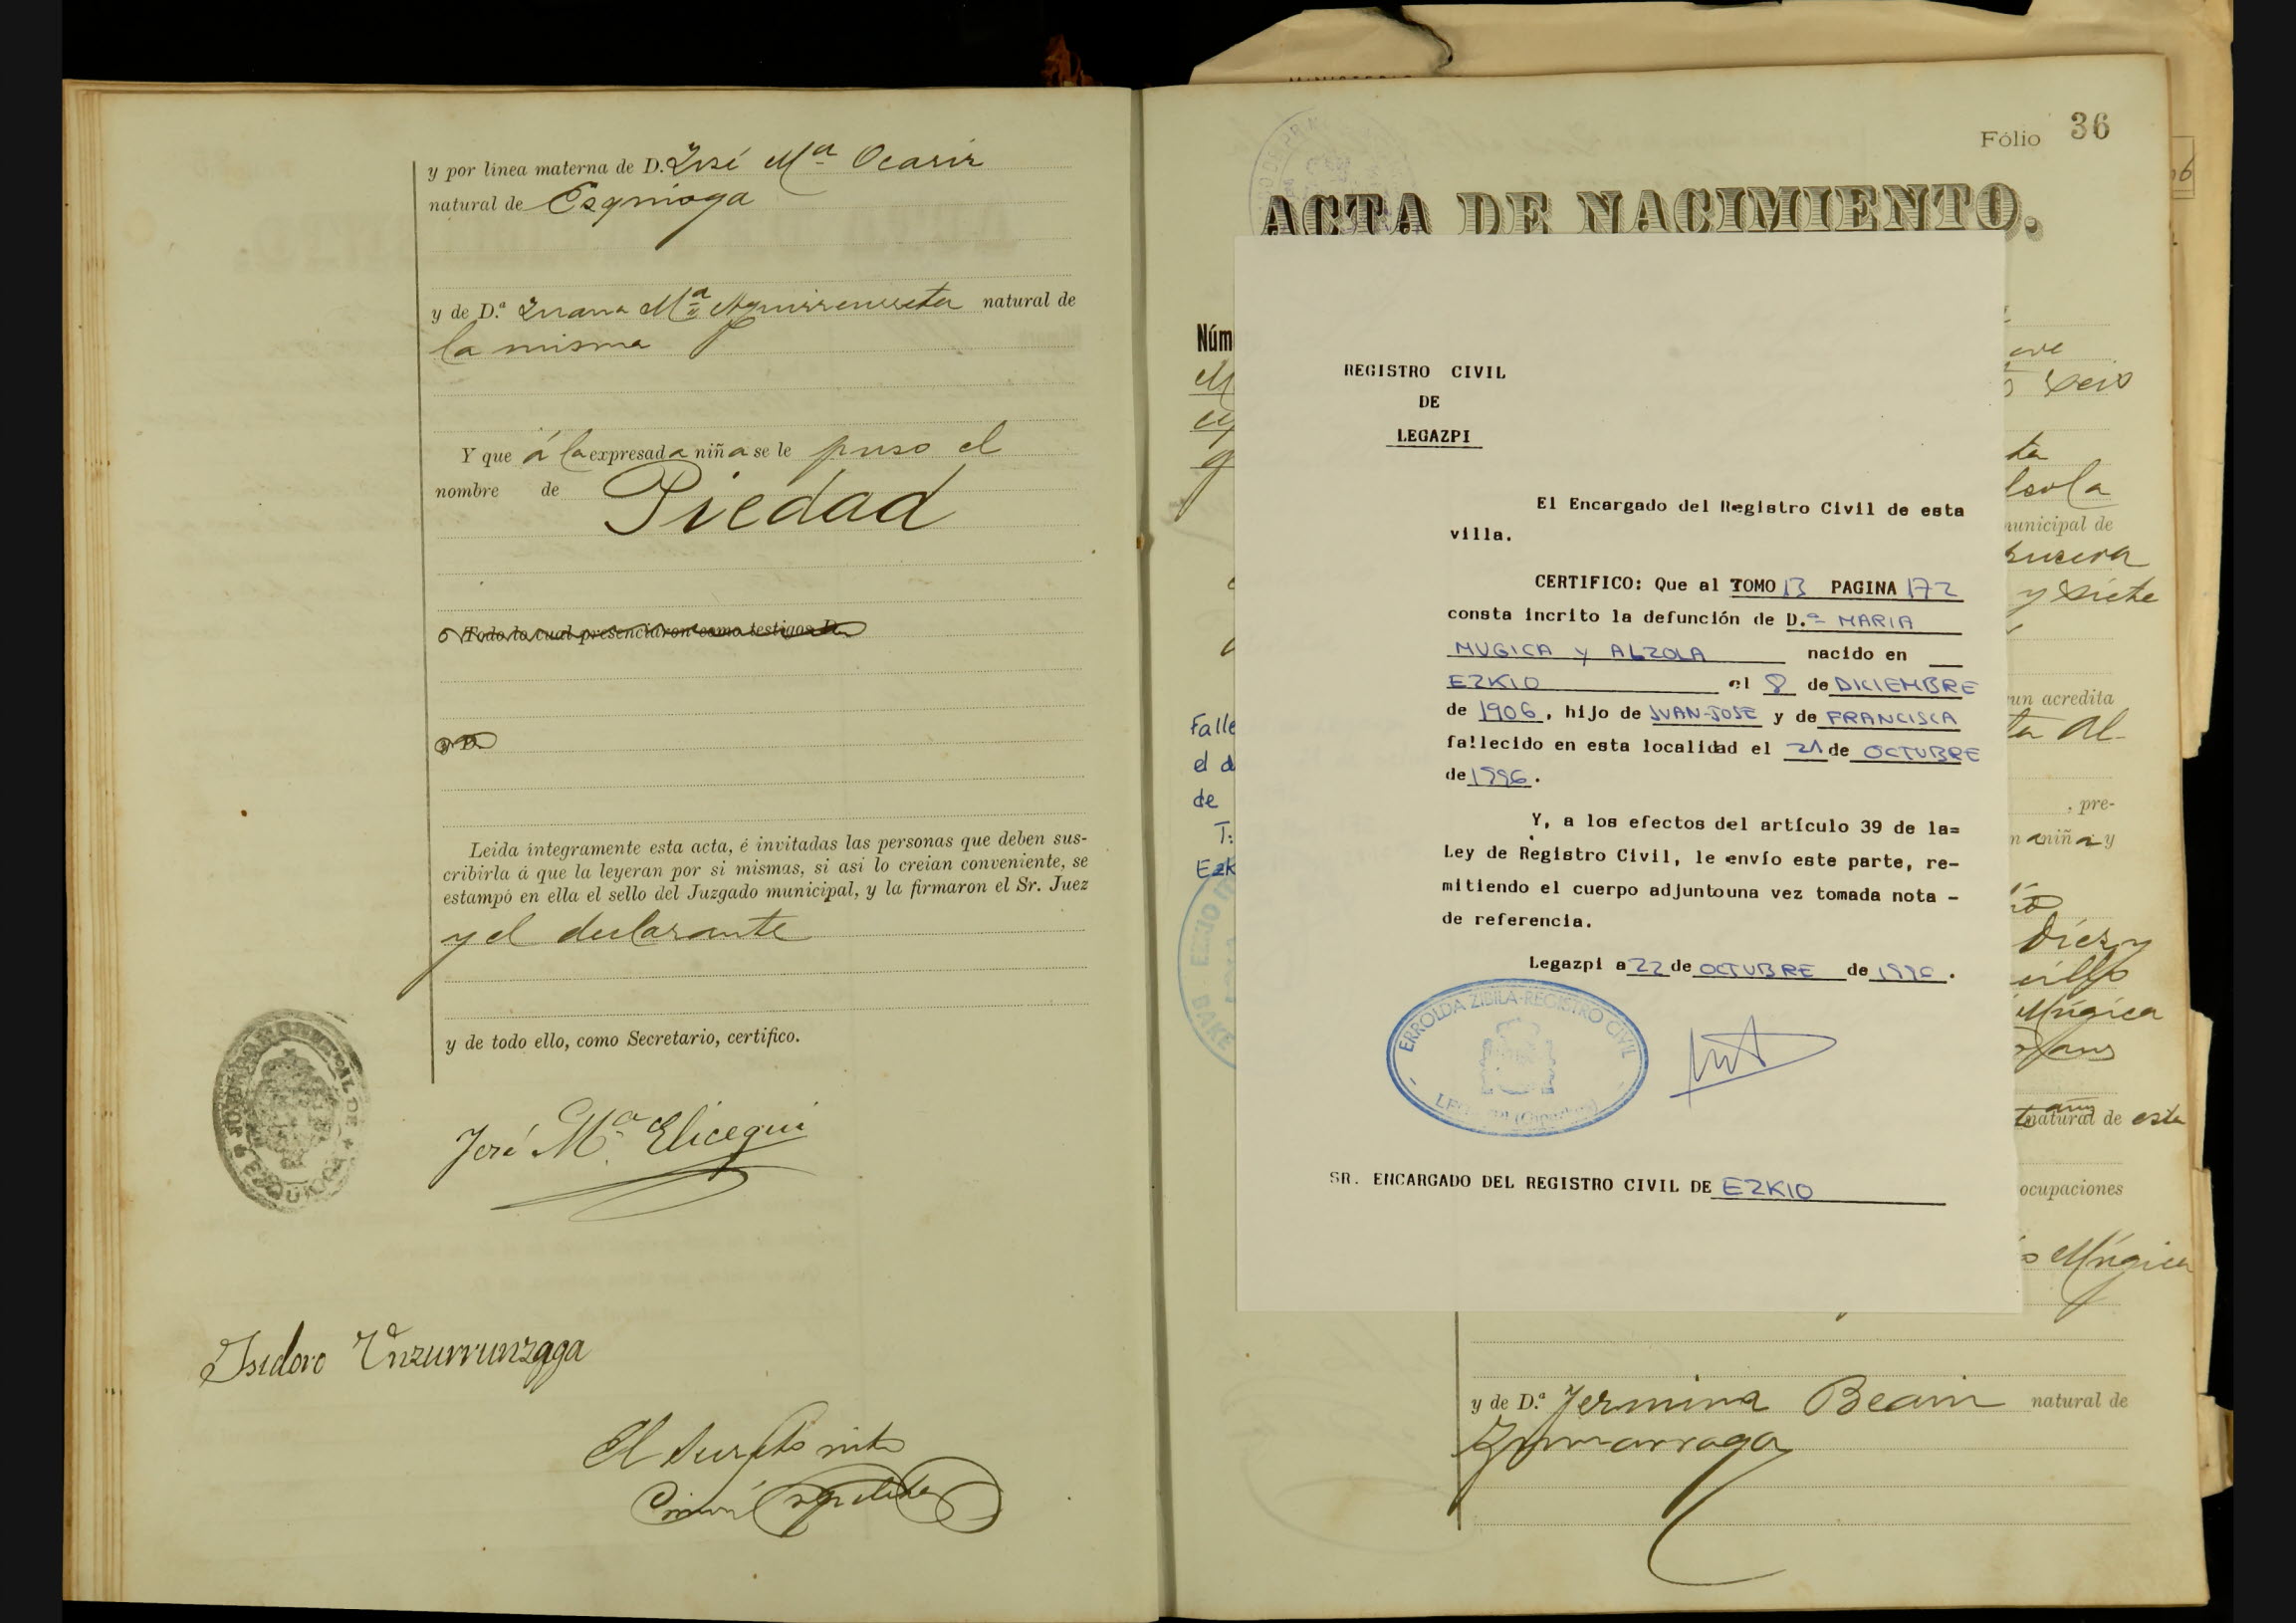 y por linea materna de D. José Mª Ocariz
natural de Ezquioga
y de D.ª Juana Mª Aguirreurreta natural de
la misma
Y que á la expresada niña se le puso el
nombre de Piedad
Todo lo cual presenciaron como testigos D.
y D.
Leida íntegramente esta acta, é invitadas las personas que deben sus-
cribirla á que la leyeran por si mismas, si asi lo creian conveniente, se
estampó en ella el sello del Juzgado municipal, y la firmaron el Sr. Juez
y el declarante
y de todo ello, como Secretario, certifico.
José Mª Elicegui
Isidoro Unzurrunzaga
El
Fólio 36
ACTA DE NACIMIENTO.
Núm
REGISTRO CIVIL
DE
LEGAZPI
El Encargado del Registro Civil de esta
villa.
CERTIFICO: Que al TOMO 13 PAGINA 172
consta incrito la defunción de D.ª MARIA
MUGICA y ALZOLA nacido en
EZKIO el 8 de DICIEMBRE
de 1906, hijo de JUAN-JOSE y de FRANCISCA
fallecido en esta localidad el 21 de OCTUBRE
de 1996.
Y, a los efectos del artículo 39 de la=
Ley de Registro Civil, le envío este parte, re-
mitiendo el cuerpo adjuntouna vez tomada nota -
de referencia.
Legazpi a 22 de OCTUBRE de 1996.
ERROLDA ZIBILA-REGISTRO CIVIL
SR. ENCARGADO DEL REGISTRO CIVIL DE EZKIO
Falle
el d
de
T:
Ezk
seis
municipal de
y siete
un acredita
, pre-
niña y
Diez y
Múgica
natural de esta
ocupaciones
Múgica
y de D.ª Fermina Beain natural de
Zumarraga